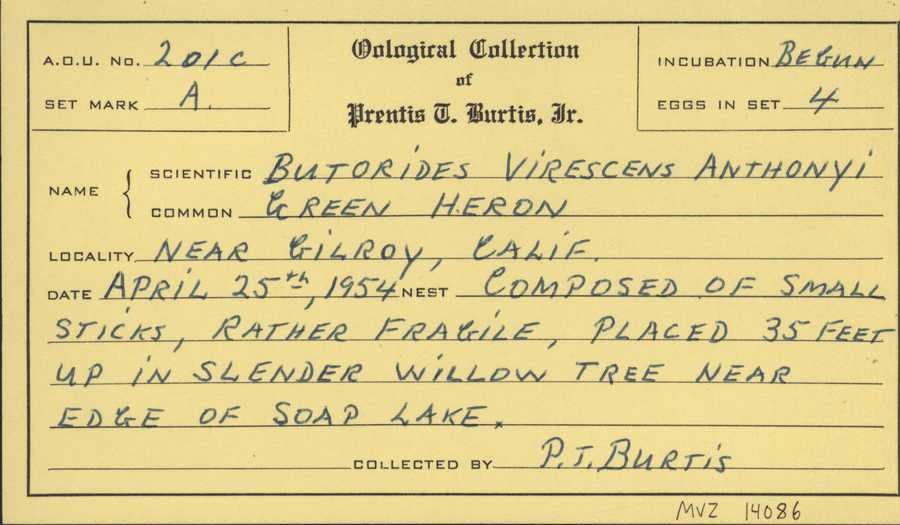 A.O.U. No. 201c
Oological Collection
INCUBATION BEGUN
SET MARK A.
of
EGGS IN SET 4
Prentis T. Burtis, Jr.
NAME
SCIENTIFIC BUTORIDES VIRESCENS ANTHONYI
COMMON GREEN HERON
LOCALITY NEAR GILROY, CALIF.
DATE APRIL 25th, 1954 NEST COMPOSED OF SMALL
STICKS, RATHER FRAGILE, PLACED 35 FEET
UP IN SLENDER WILLOW TREE NEAR
EDGE OF SOAP LAKE.
COLLECTED BY P.T. BURTIS
MVZ 14086